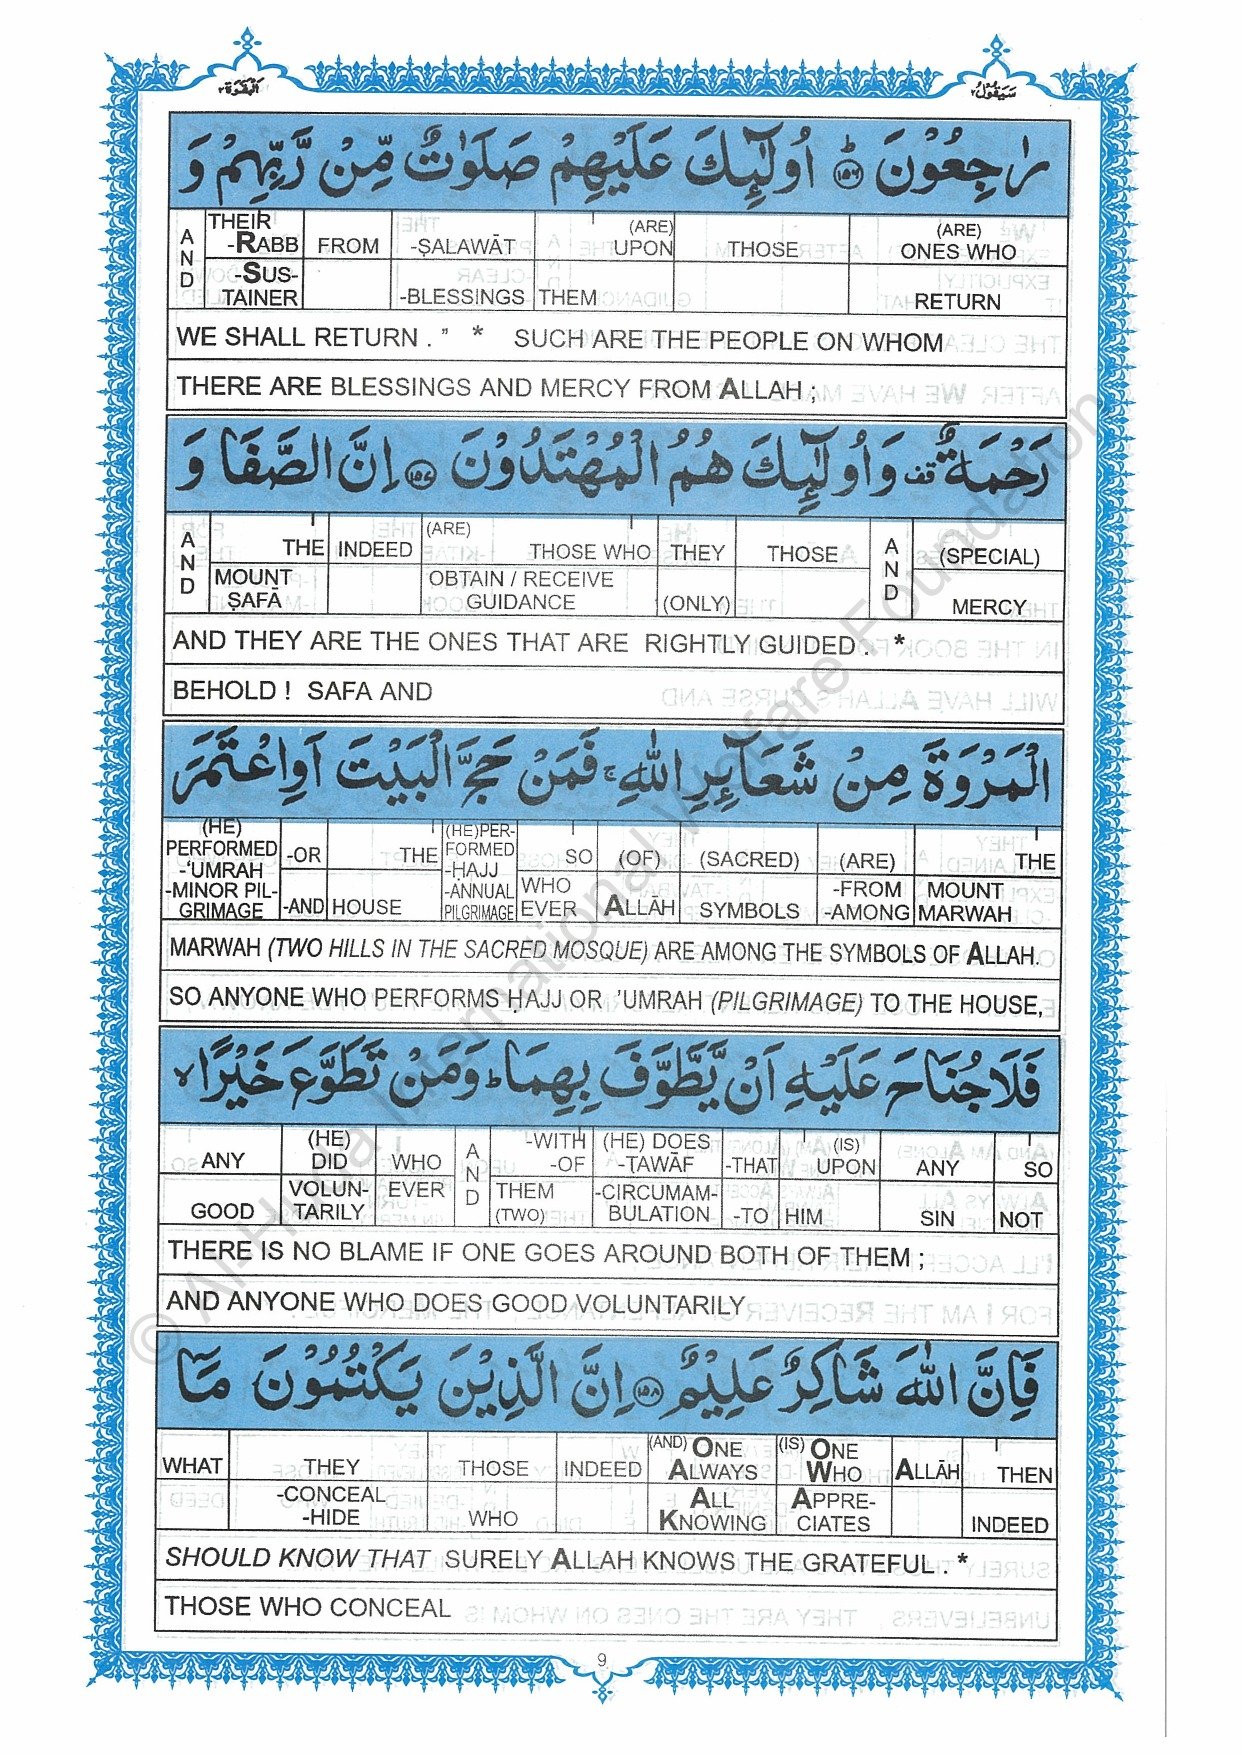 البقرة ٢
سيقول ٢
رٰجِعُوْنَ ؕ ﴿١٥٦﴾ اُولٰٓئِكَ عَلَيْهِمْ صَلَوٰتٌ مِّنْ رَّبِّهِمْ وَ
AND | THEIR -RABB | FROM | -ṢALAWĀT | (ARE) UPON | THOSE | (ARE) ONES WHO
-SUS-TAINER | -BLESSINGS | THEM | RETURN
WE SHALL RETURN . ” * SUCH ARE THE PEOPLE ON WHOM
THERE ARE BLESSINGS AND MERCY FROM ALLAH ;
رَحْمَةٌ قف وَاُولٰٓئِكَ هُمُ الْمُهْتَدُوْنَ ﴿١٥٧﴾ اِنَّ الصَّفَا وَ
AND | THE | INDEED | (ARE) THOSE WHO | THEY | THOSE | AND | (SPECIAL)
MOUNT ṢAFĀ | OBTAIN / RECEIVE GUIDANCE | (ONLY) | MERCY
AND THEY ARE THE ONES THAT ARE RIGHTLY GUIDED . *
BEHOLD ! SAFA AND
الْمَرْوَةَ مِنْ شَعَآئِرِ اللّٰهِ ۚ فَمَنْ حَجَّ الْبَيْتَ اَوِاعْتَمَرَ
(HE) PERFORMED -‘UMRAH -MINOR PIL-GRIMAGE | -OR | THE | (HE)PER-FORMED -ḤAJJ -ANNUAL PILGRIMAGE | SO | (OF) | (SACRED) | (ARE) | THE
-AND | HOUSE | WHO EVER | ALLĀH | SYMBOLS | -FROM -AMONG | MOUNT MARWAH
MARWAH (TWO HILLS IN THE SACRED MOSQUE) ARE AMONG THE SYMBOLS OF ALLAH.
SO ANYONE WHO PERFORMS ḤAJJ OR ’UMRAH (PILGRIMAGE) TO THE HOUSE,
فَلَاجُنَاحَ عَلَيْهِ اَنْ يَّطَّوَّفَ بِهِمَا ؕ وَمَنْ تَطَوَّعَ خَيْرًا ۙ
ANY | (HE) DID | WHO | AND | -WITH -OF | (HE) DOES -ṬAWĀF | -THAT | (IS) UPON | ANY | SO
GOOD | VOLUN-TARILY | EVER | THEM (TWO) | -CIRCUMAM-BULATION | -TO | HIM | SIN | NOT
THERE IS NO BLAME IF ONE GOES AROUND BOTH OF THEM ;
AND ANYONE WHO DOES GOOD VOLUNTARILY
فَاِنَّ اللّٰهَ شَاكِرٌ عَلِيْمٌ ﴿١٥٨﴾ اِنَّ الَّذِيْنَ يَكْتُمُوْنَ مَآ
WHAT | THEY | THOSE | INDEED | (AND) ONE ALWAYS | (IS) ONE WHO | ALLĀH | THEN
-CONCEAL -HIDE | WHO | ALL KNOWING | APPRE-CIATES | INDEED
SHOULD KNOW THAT SURELY ALLAH KNOWS THE GRATEFUL . *
THOSE WHO CONCEAL
9
© Al-Huda International Welfare Foundation